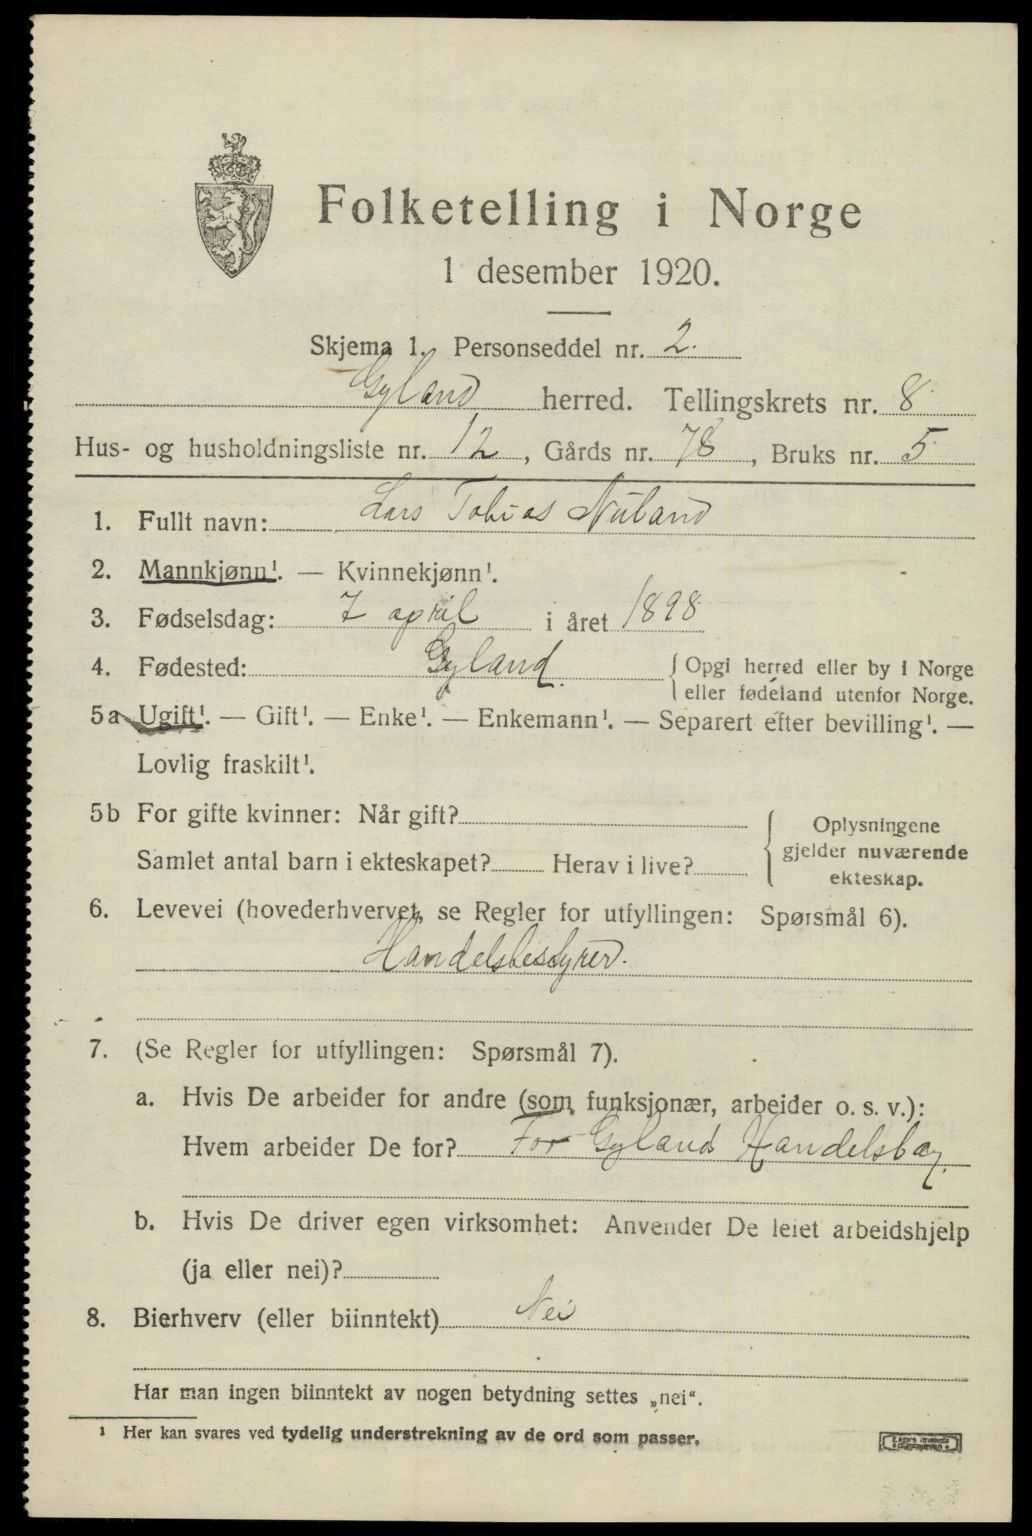 Folketelling i Norge
1 desember 1920.
Skjema 1. Personseddel nr. 2.
Gyland herred. Tellingskrets nr. 8
Hus- og husholdningsliste nr. 12, Gårds nr. 78, Bruks nr. 5
1. Fullt navn: Lars Tobias Nuland
2. Mannkjønn¹. — Kvinnekjønn¹.
3. Fødselsdag: 7 april i året 1898
4. Fødested: Gyland. { Opgi herred eller by i Norge
eller fødeland utenfor Norge.
5 a Ugift¹. — Gift¹. — Enke¹. — Enkemann¹. — Separert efter bevilling¹. —
Lovlig fraskilt¹.
5 b For gifte kvinner: Når gift?
Samlet antal barn i ekteskapet? Herav i live?
Oplysningene
gjelder nuværende
ekteskap.
6. Levevei (hovederhvervet, se Regler for utfyllingen: Spørsmål 6).
Handelsbestyrer.
7. (Se Regler for utfyllingen: Spørsmål 7).
a. Hvis De arbeider for andre (som funksjonær, arbeider o. s. v.):
Hvem arbeider De for? For Gyland Handelslag.
b. Hvis De driver egen virksomhet: Anvender De leiet arbeidshjelp
(ja eller nei)?
8. Bierhverv (eller biinntekt) Nei
Har man ingen biinntekt av nogen betydning settes „nei“.
¹ Her kan svares ved tydelig understrekning av de ord som passer.